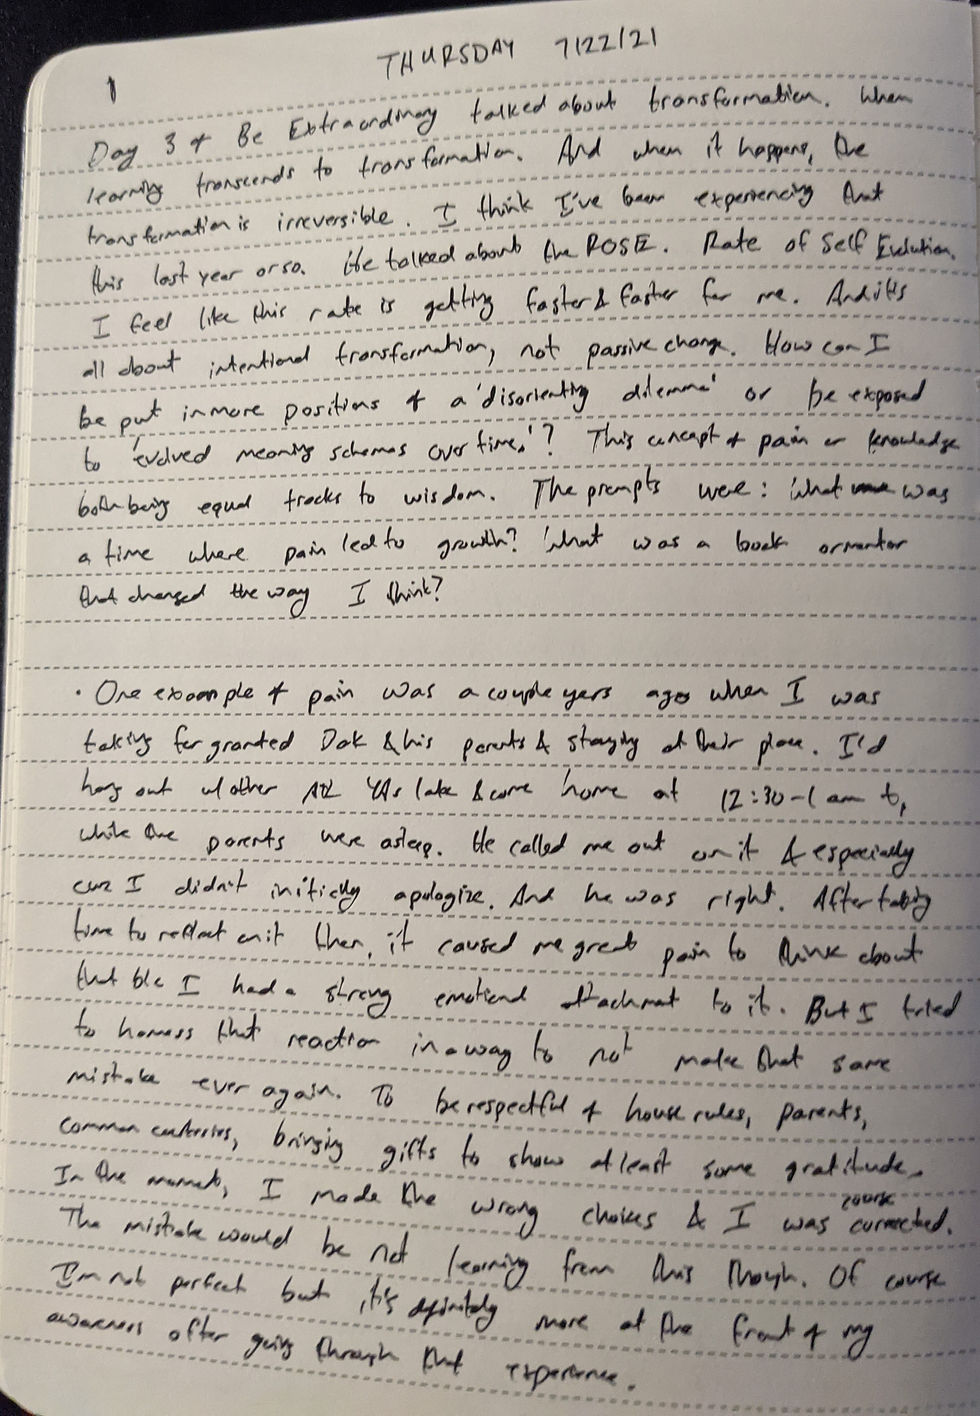 THURSDAY 7/22/21
1
Day 3 of Be Extraordinary talked about transformation. When
learning transcends to transformation. And when it happens, the
transformation is irreversible. I think I've been experiencing that
this last year or so. He talked about the ROSE. Rate of Self Evolution.
I feel like this rate is getting faster & faster for me. And it's
all about intentional transformation, not passive change. How can I
be put in more positions of a 'disorienting dilemma' or be exposed
to 'evolved meaning schemas over time.'? This concept of pain or knowledge
both being equal tracks to wisdom. The prompts were: What was
a time where pain led to growth? What was a book or mentor
that changed the way I think?
· One example of pain was a couple years ago when I was
taking for granted Dak & his parents & staying at their place. I'd
hang out w/ other ATL YAs late & come home at 12:30-1 am
while the parents were asleep. He called me out on it & especially
cuz I didn't initially apologize. And he was right. After taking
time to reflect on it then, it caused me great pain to think about
that b/c I had a strong emotional attachment to it. But I tried
to harness that reaction in a way to not make that same
mistake ever again. To be respectful of house rules, parents,
common courtesies, bringing gifts to show at least some gratitude.
In the moment, I made the wrong choices & I was course corrected.
The mistake would be not learning from this though. Of course
I'm not perfect but it's definitely more at the front of my
awareness after going through that experience.